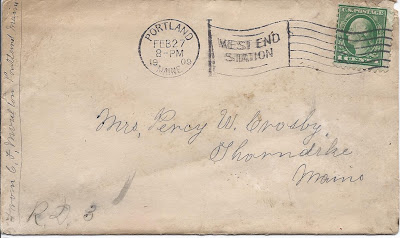 PORTLAND
FEB 27
8-PM
19 09
MAINE.
WEST END
STATION
Mrs. Percy W. Crosby,
Thorndike
Maine
R.D. 3
From
Portland Maine